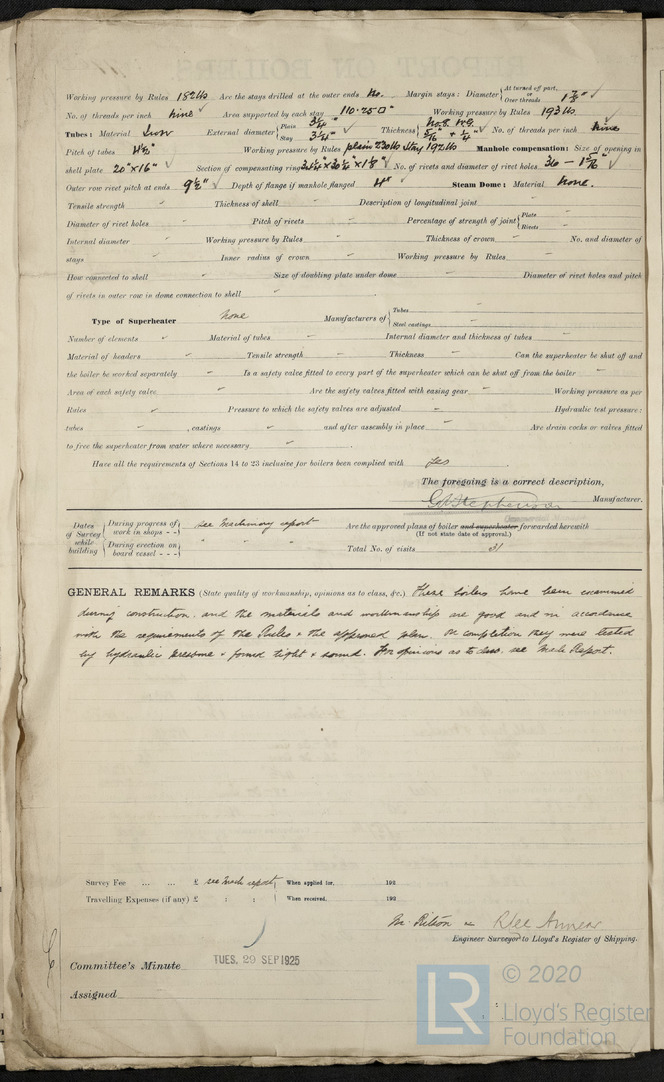 Working pressure by Rules 182 lbs Are the stays drilled at the outer ends No. Margin stays: Diameter { At turned off part, or Over threads 1 7/8"
No. of threads per inch nine Area supported by each stay 110.25 □" Working pressure by Rules 193 lbs
Tubes: Material Iron External diameter { Plain 3 1/4" Stay 3 1/4" Thickness { No. 8 W.G. 5/16" + 1/4" No. of threads per inch nine
Pitch of tubes 4 1/2" Working pressure by Rules plain 230 lbs Stay 192 lbs Manhole compensation: Size of opening in
shell plate 20" x 16" Section of compensating ring No. of rivets and diameter of rivet holes 36 — 1 5/16"
Outer row rivet pitch at ends 9 1/2" Depth of flange if manhole flanged 4" Steam Dome: Material None.
Tensile strength Thickness of shell Description of longitudinal joint
Diameter of rivet holes Pitch of rivets Percentage of strength of joint { Plate Rivets
Internal diameter Working pressure by Rules Thickness of crown No. and diameter of
stays Inner radius of crown Working pressure by Rules
How connected to shell Size of doubling plate under dome Diameter of rivet holes and pitch
of rivets in outer row in dome connection to shell
Type of Superheater None Manufacturers of { Tubes Steel castings
Number of elements Material of tubes Internal diameter and thickness of tubes
Material of headers Tensile strength Thickness Can the superheater be shut off and
the boiler be worked separately Is a safety valve fitted to every part of the superheater which can be shut off from the boiler
Area of each safety valve Are the safety valves fitted with easing gear Working pressure as per
Rules Pressure to which the safety valves are adjusted Hydraulic test pressure:
tubes , castings and after assembly in place Are drain cocks or valves fitted
to free the superheater from water where necessary
Have all the requirements of Sections 14 to 23 inclusive for boilers been complied with Yes
The foregoing is a correct description,
G. Stephenson Manufacturer.
Dates of Survey while building { During progress of work in shops - - During erection on board vessel - - - } see Machinery report " " "
Are the approved plans of boiler and superheater forwarded herewith
(If not state date of approval.)
Total No. of visits 31
GENERAL REMARKS (State quality of workmanship, opinions as to class, &c.) These boilers have been examined
during construction, and the materials and workmanship are good and in accordance
with the requirements of the Rules & the approved plan. On completion they were tested
by hydraulic pressure & found tight & sound. For opinions as to class see Mach. Report.
Survey Fee ... ... £ see Mach report When applied for, 192
Travelling Expenses (if any) £ : : When received, 192
Engineer Surveyor to Lloyd's Register of Shipping.
Committee's Minute TUES. 29 SEP 1925
Assigned
LR
© 2020
Lloyd's Register
Foundation